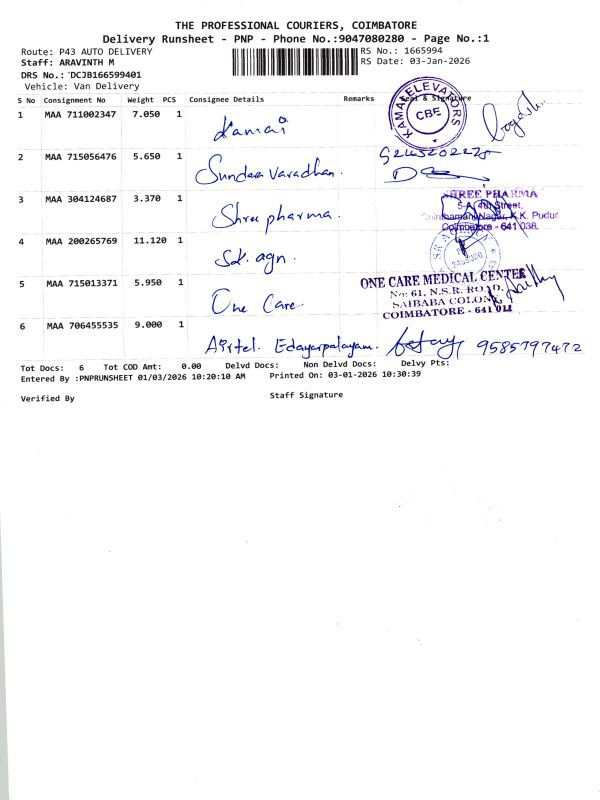 THE PROFESSIONAL COURIERS, COIMBATORE
Delivery Runsheet - PNP - Phone No.:9047080280 - Page No.:1
Route: P43 AUTO DELIVERY
RS No.: 1665994
Staff: ARAVINTH M
RS Date: 03-Jan-2026
DRS No.: DCJB166599401
Vehicle: Van Delivery
S No Consignment No Weight PCS Consignee Details Remarks Seal & Signature
1 MAA 711002347 7.050 1 Kamai KAMAI ELEVATORS CBE
2 MAA 715056476 5.650 1 Sundara Varadhan.
3 MAA 304124687 3.370 1 Shree pharma.
SHREE PHARMA
5-A, 4th Street,
Chinthamani Nagar, K.K. Pudur
Coimbatore - 641 038.
4 MAA 200265769 11.120 1 Sk. agn.
5 MAA 715013371 5.950 1 One Care.
ONE CARE MEDICAL CENTER
No: 61, N.S.R. ROAD,
SAIBABA COLONY,
COIMBATORE - 641 011
6 MAA 706455535 9.000 1 Airtel. Edayarpalayam. 9585797472
Tot Docs: 6 Tot COD Amt: 0.00 Delvd Docs: Non Delvd Docs: Delvy Pts:
Entered By :PNPRUNSHEET 01/03/2026 10:20:10 AM Printed On: 03-01-2026 10:30:39
Verified By Staff Signature